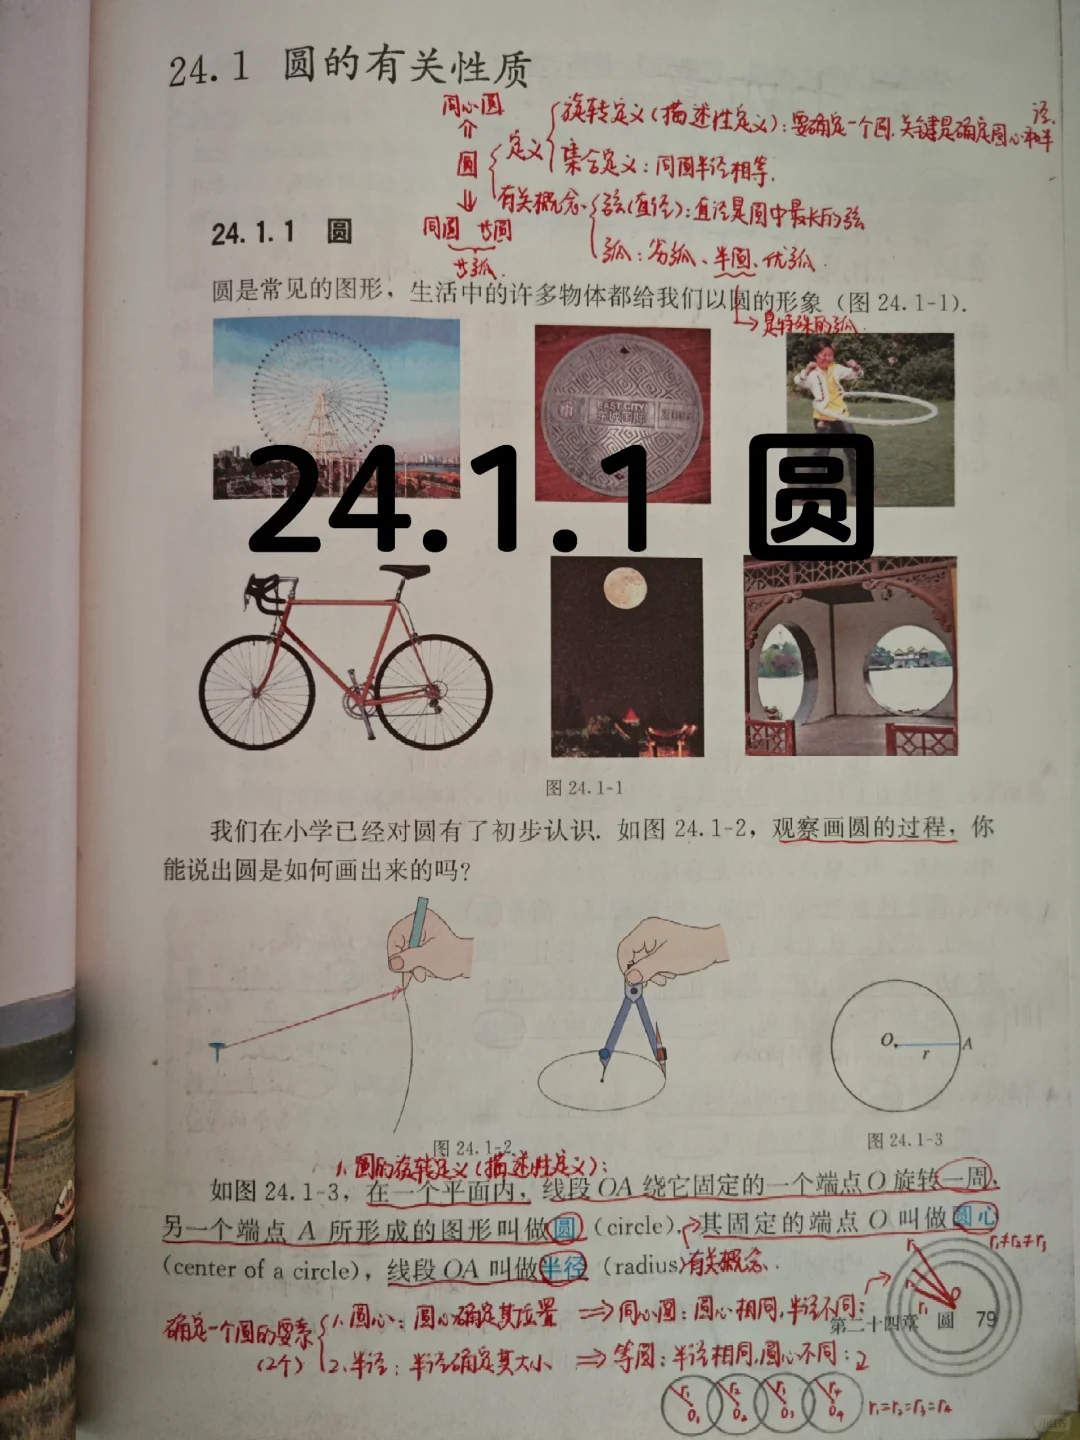 24.1 圆的有关性质
同心圆
⇑
圆
⇓
同圆 等圆
等弧.
定义
旋转定义(描述性定义):要确定一个圆,关键是确定圆心和半径.
集合定义:同圆半径相等.
有关概念
弦(直径):直径是圆中最长的弦
弧:劣弧、半圆、优弧.
24.1.1 圆
圆是常见的图形,生活中的许多物体都给我们以圆的形象(图 24.1-1).
是特殊的弧.
EAST CITY
24.1.1 圆
图 24.1-1
我们在小学已经对圆有了初步认识. 如图 24.1-2,观察画圆的过程,你
能说出圆是如何画出来的吗?
O
r
A
图 24.1-2
图 24.1-3
1.圆的旋转定义(描述性定义):
如图 24.1-3,在一个平面内,线段 OA 绕它固定的一个端点 O 旋转一周,
另一个端点 A 所形成的图形叫做圆(circle),其固定的端点 O 叫做圆心
(center of a circle),线段 OA 叫做半径(radius)
有关概念.
r₁≠r₂≠r₃
确定一个圆的要素
(2个)
1.圆心:圆心确定其位置 ⇒同心圆:圆心相同,半径不同:
第二十四章 圆 79
2.半径:半径确定其大小 ⇒等圆:半径相同,圆心不同:
r₁ r₂ r₃ r₄
O₁ O₂ O₃ O₄
r₁=r₂=r₃=r₄